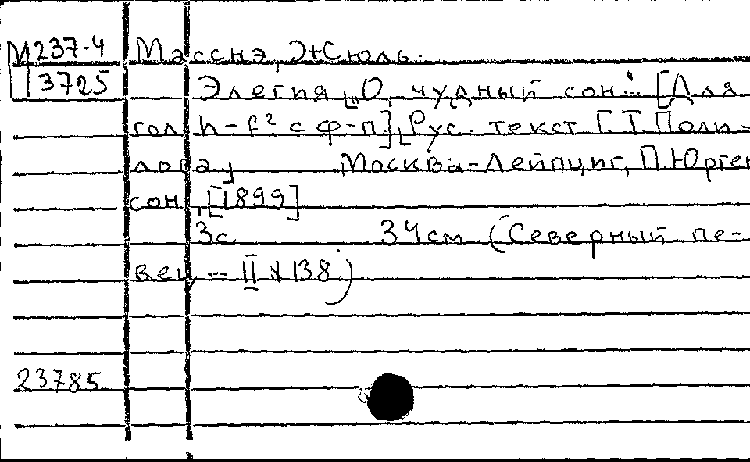 М237-4 Массне, Жюль.
3725 Элегия „О, чудный сон..." [Для
гол. h-f² с ф-п], Рус. текст Г.Т. Поли-
лова, Москва-Лейпциг, П. Юрген-
сон, [1899]
3с 34 см (Северный пе-
вец - II № 138)
23785